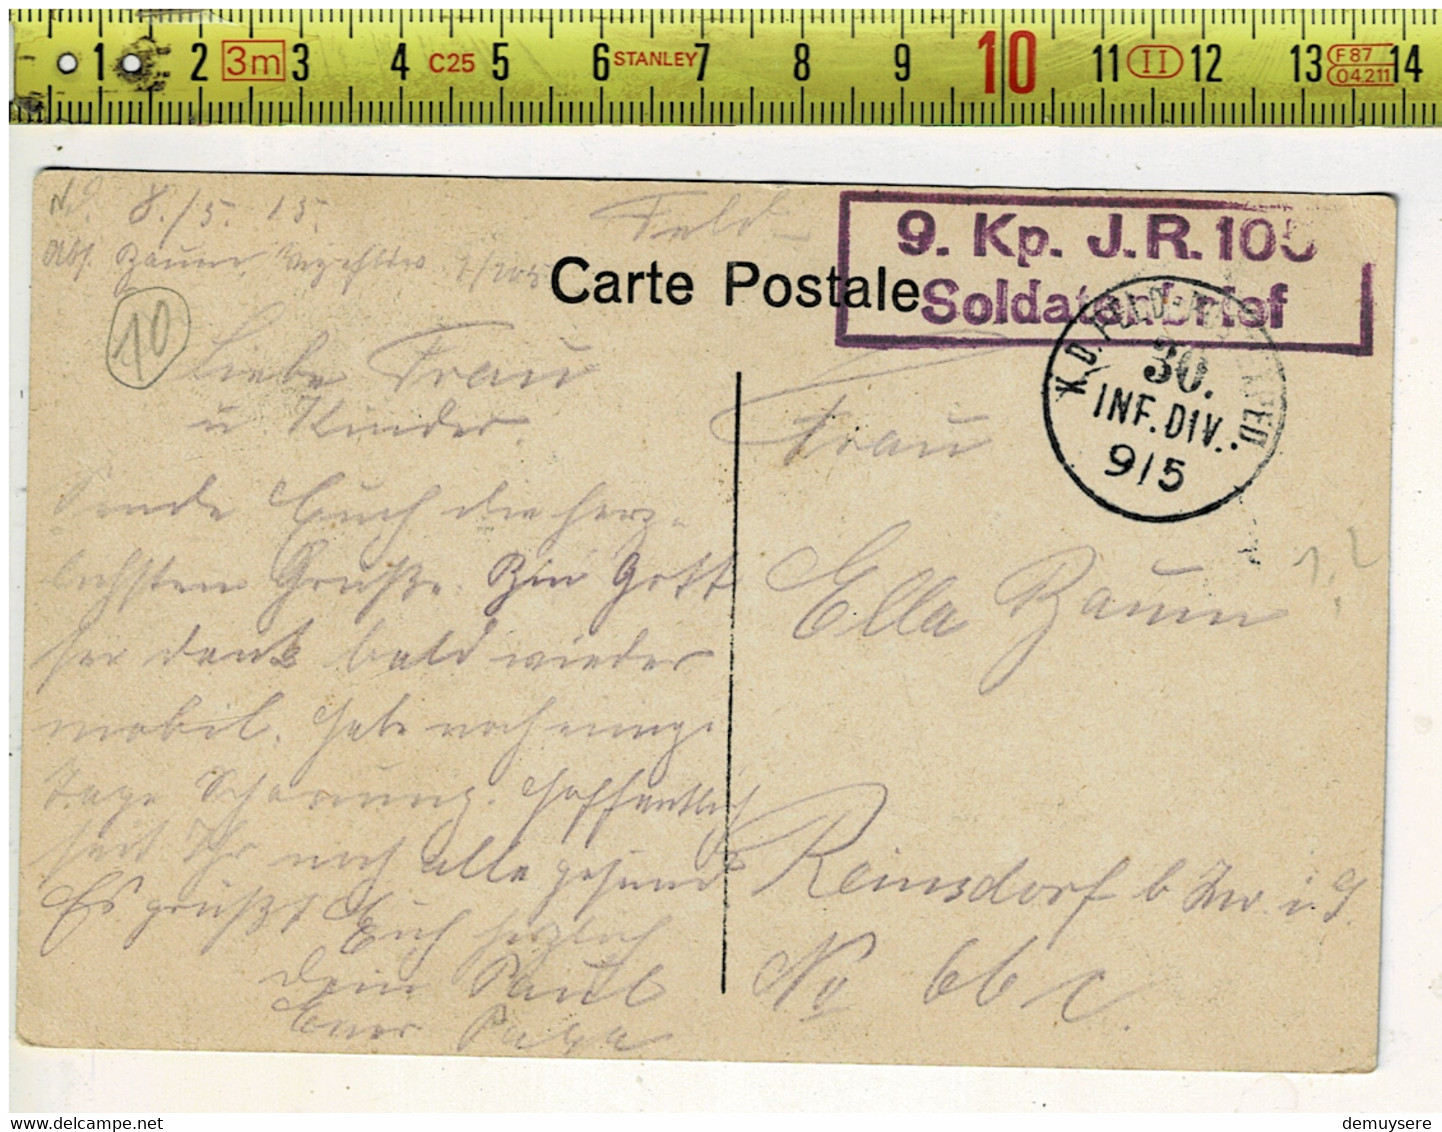 1 2 3m 3 4 C25 5 6 STANLEY 7 8 9 10 11 II 12 13 F87 04.211 14
8./5. 15.
Abs. Baum,
Feld-
Carte Postale
9. Kp. J.R. 105
Soldatenbrief
K.D. FELD-POSTEXPED.
30.
INF. DIV.
9/5
10
Liebe Frau
u. Kinder.
Sende Euch die herz-
lichsten Grüße. Bin Gott
sei dank bald wieder
mobil. Habe noch einige
Tage Schonung. Hoffentlich
seit Ihr noch alle gesund
Es grüßt Euch herzlich
Dein Paul
Euer Papa
Frau
Ella Baum
Reinsdorf b Zw. i. S.
No 66 c.
www.delcampe.net
demuysere